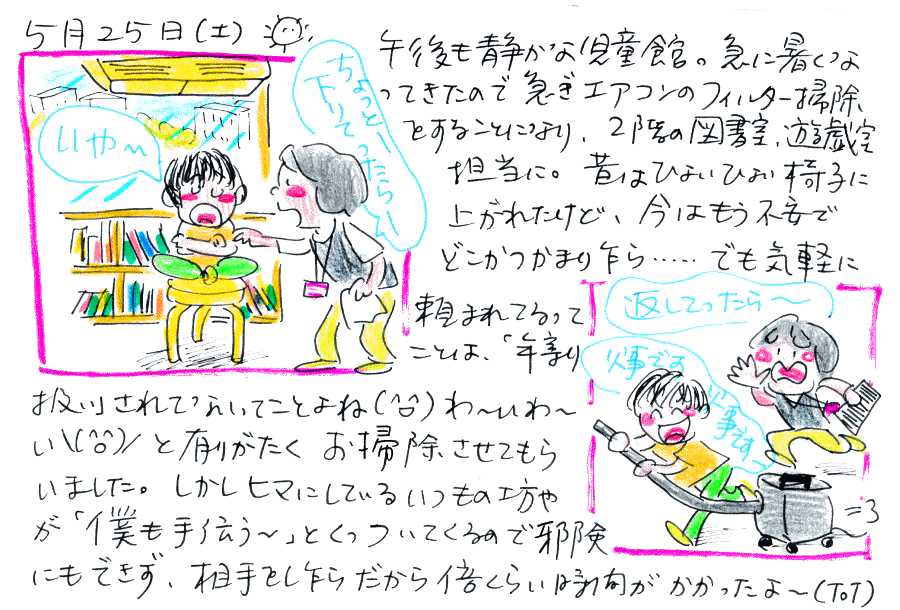 5月25日(土)
ちょっとー
下りてったらー
いや〜
午後も静かな児童館。急に暑くな
ってきたので急ぎエアコンのフィルター掃除
をすることになり、2階の図書室、遊戯室
担当に。昔はひょいひょい椅子に
上がれたけど、今はもう不安で
どこかつかまり乍ら……でも気軽に
頼まれてるって
ことは、「年寄り
扱い」されてないってことよね(^o^)わ〜いわ〜
い\(^o^)/と有りがたくお掃除させてもら
いました。しかしヒマにしているいつもの坊や
が「僕も手伝う〜」とくっついてくるので邪険
にもできず、相手をし乍らだから倍くらい時間がかかったよ〜(ToT)
返してったら〜
火事です
火事です〜
=3